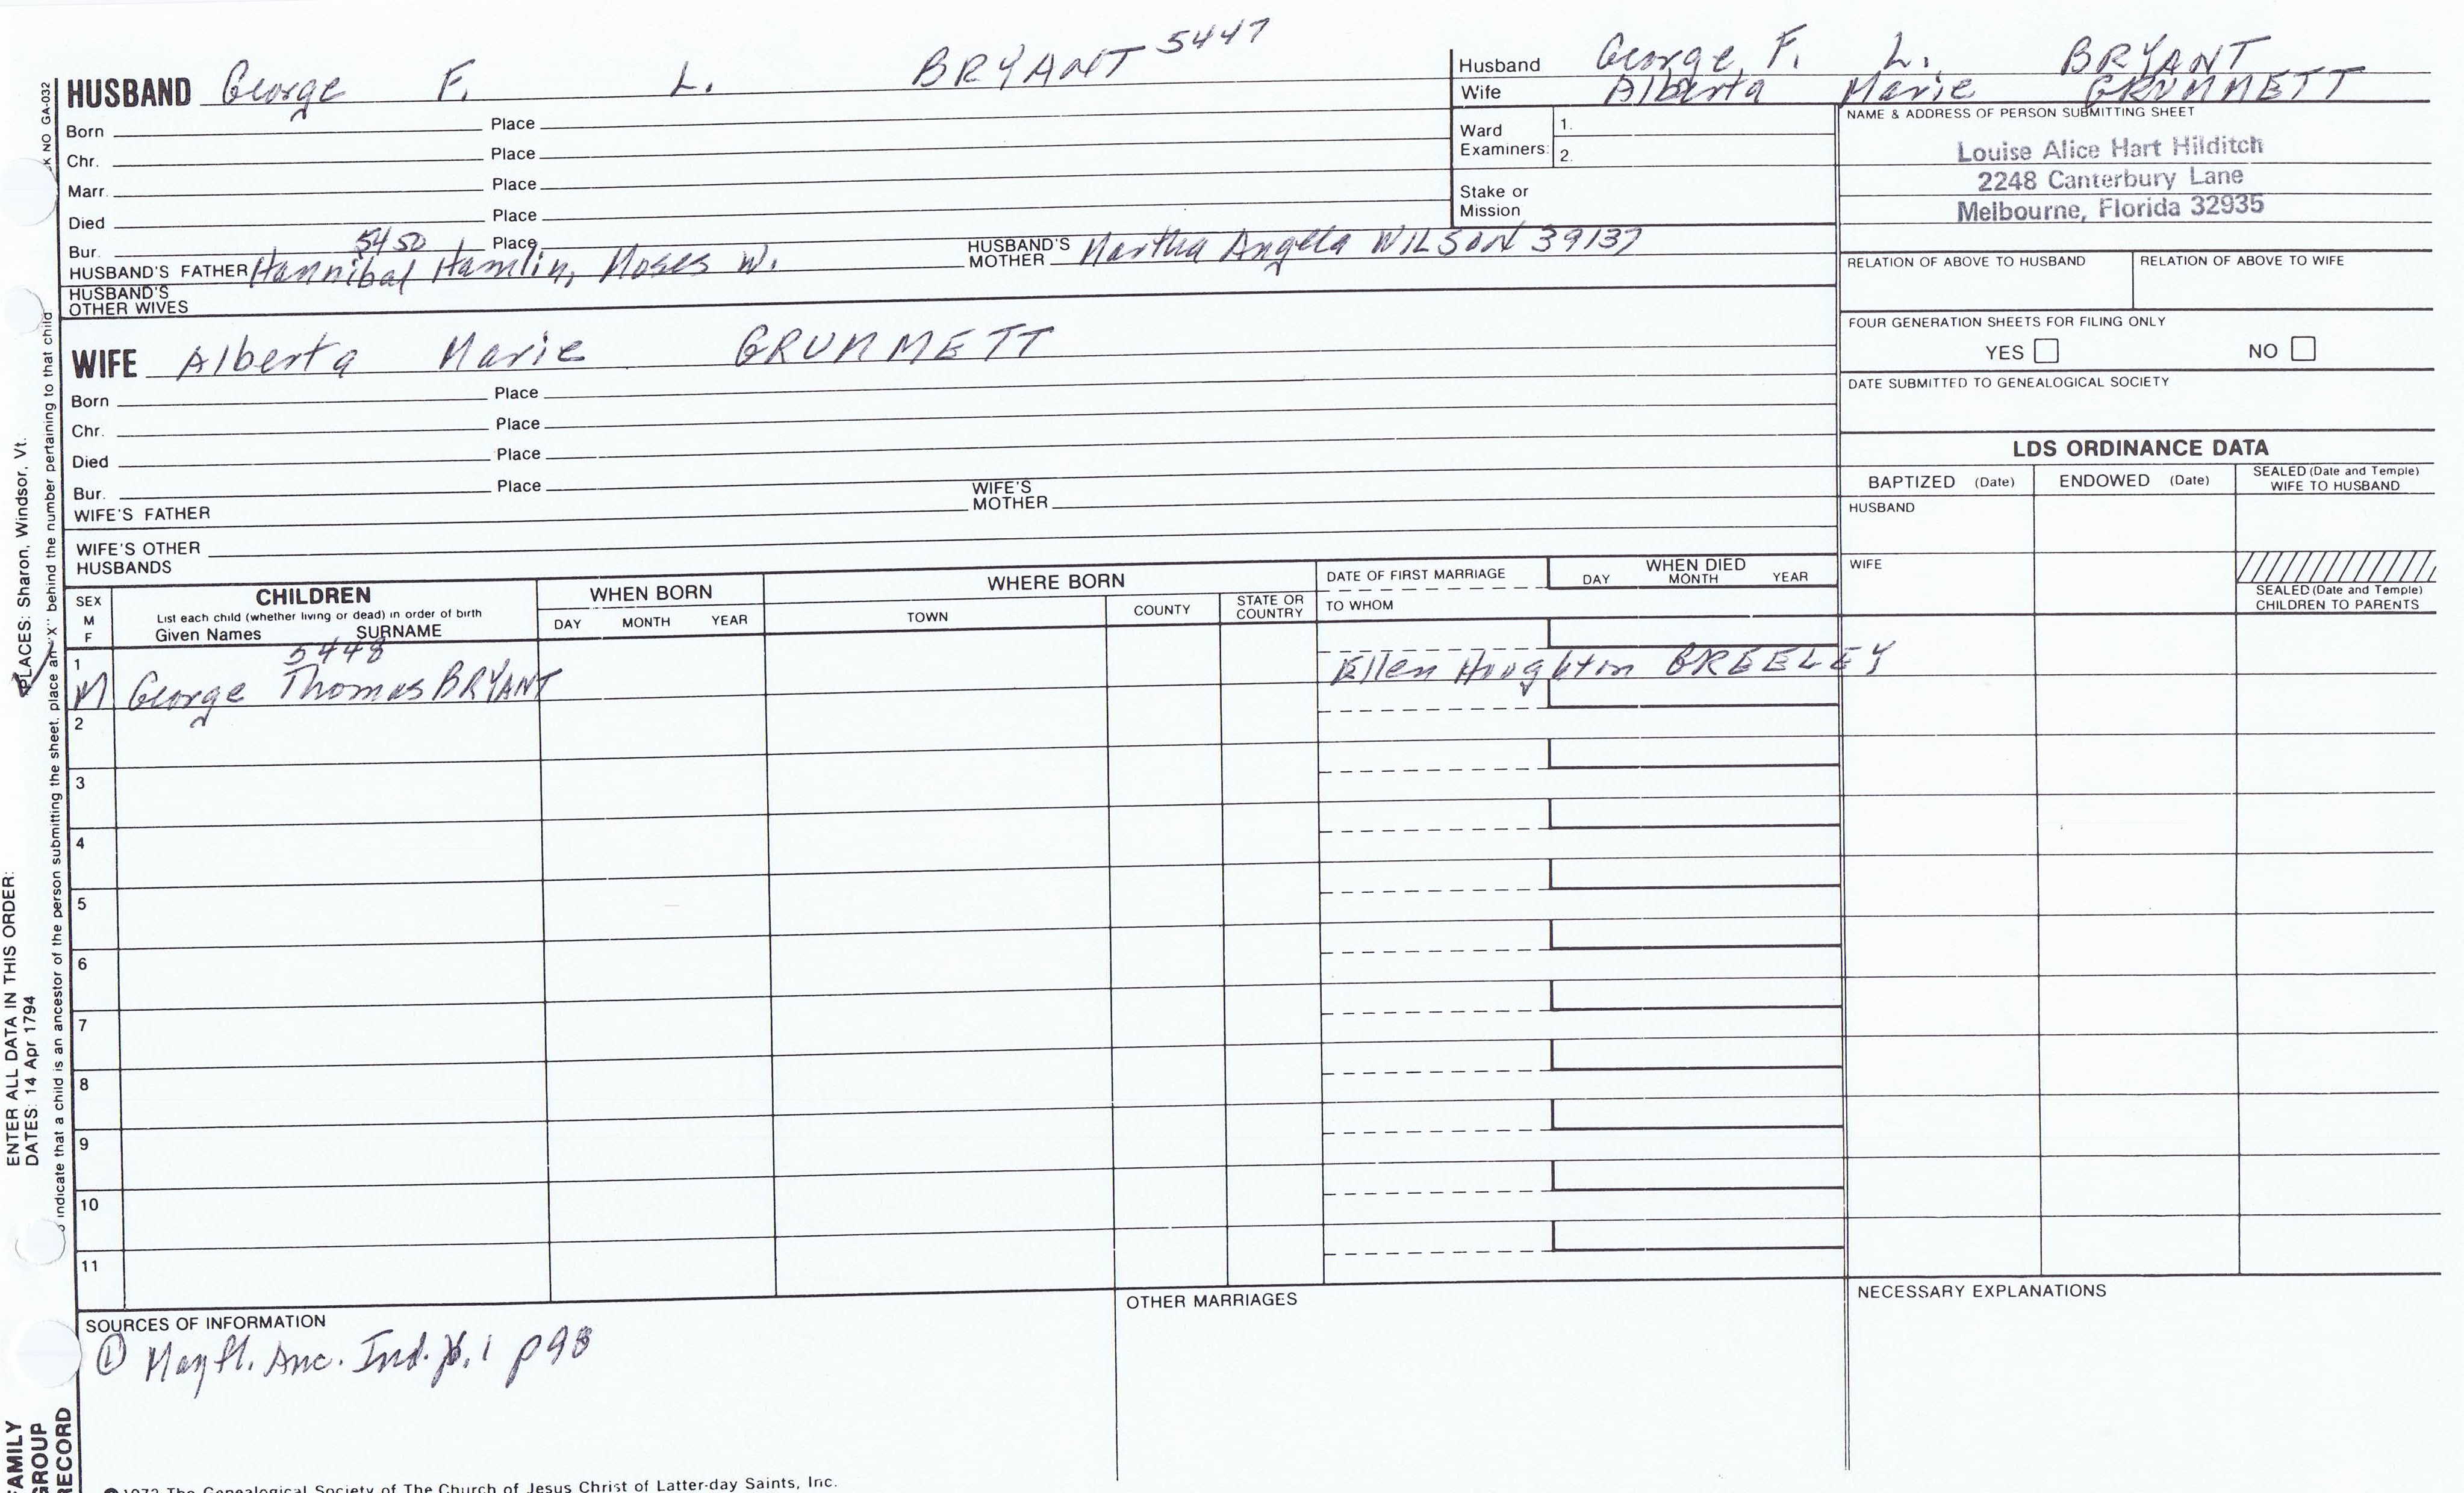 HUSBAND George F. L. BRYANT 5447
Born Place
Chr. Place
Marr. Place
Died Place
Bur. 5450 Place
HUSBAND'S FATHER Hannibal Hamlin, Moses W. HUSBAND'S MOTHER Martha Angela WILSON 39137
HUSBAND'S OTHER WIVES
Husband George F. L. BRYANT
Wife Alberta Marie GRUMMETT
Ward Examiners: 1.
2.
Stake or Mission
NAME & ADDRESS OF PERSON SUBMITTING SHEET
Louise Alice Hart Hilditch
2248 Canterbury Lane
Melbourne, Florida 32935
RELATION OF ABOVE TO HUSBAND RELATION OF ABOVE TO WIFE
FOUR GENERATION SHEETS FOR FILING ONLY
YES NO
DATE SUBMITTED TO GENEALOGICAL SOCIETY
WIFE Alberta Marie GRUMMETT
Born Place
Chr. Place
Died Place
Bur. Place
WIFE'S FATHER WIFE'S MOTHER
WIFE'S OTHER HUSBANDS
LDS ORDINANCE DATA
BAPTIZED (Date) ENDOWED (Date) SEALED (Date and Temple) WIFE TO HUSBAND
HUSBAND
WIFE
SEALED (Date and Temple) CHILDREN TO PARENTS
SEX M F
CHILDREN
List each child (whether living or dead) in order of birth
Given Names SURNAME
WHEN BORN
DAY MONTH YEAR
WHERE BORN
TOWN COUNTY STATE OR COUNTRY
DATE OF FIRST MARRIAGE
TO WHOM
WHEN DIED
DAY MONTH YEAR
5448
1 M George Thomas BRYANT Ellen Houghton BREELEY
2
3
4
5
6
7
8
9
10
11
SOURCES OF INFORMATION
① Mayfl. Anc. Ind. V. 1 p98
OTHER MARRIAGES
NECESSARY EXPLANATIONS
1972 The Genealogical Society of The Church of Jesus Christ of Latter-day Saints, Inc.
FAMILY GROUP RECORD
ENTER ALL DATA IN THIS ORDER:
DATES: 14 Apr 1794
PLACES: Sharon, Windsor, Vt.
indicate that a child is an ancestor of the person submitting the sheet, place an "X" behind the number pertaining to that child
K NO GA-032